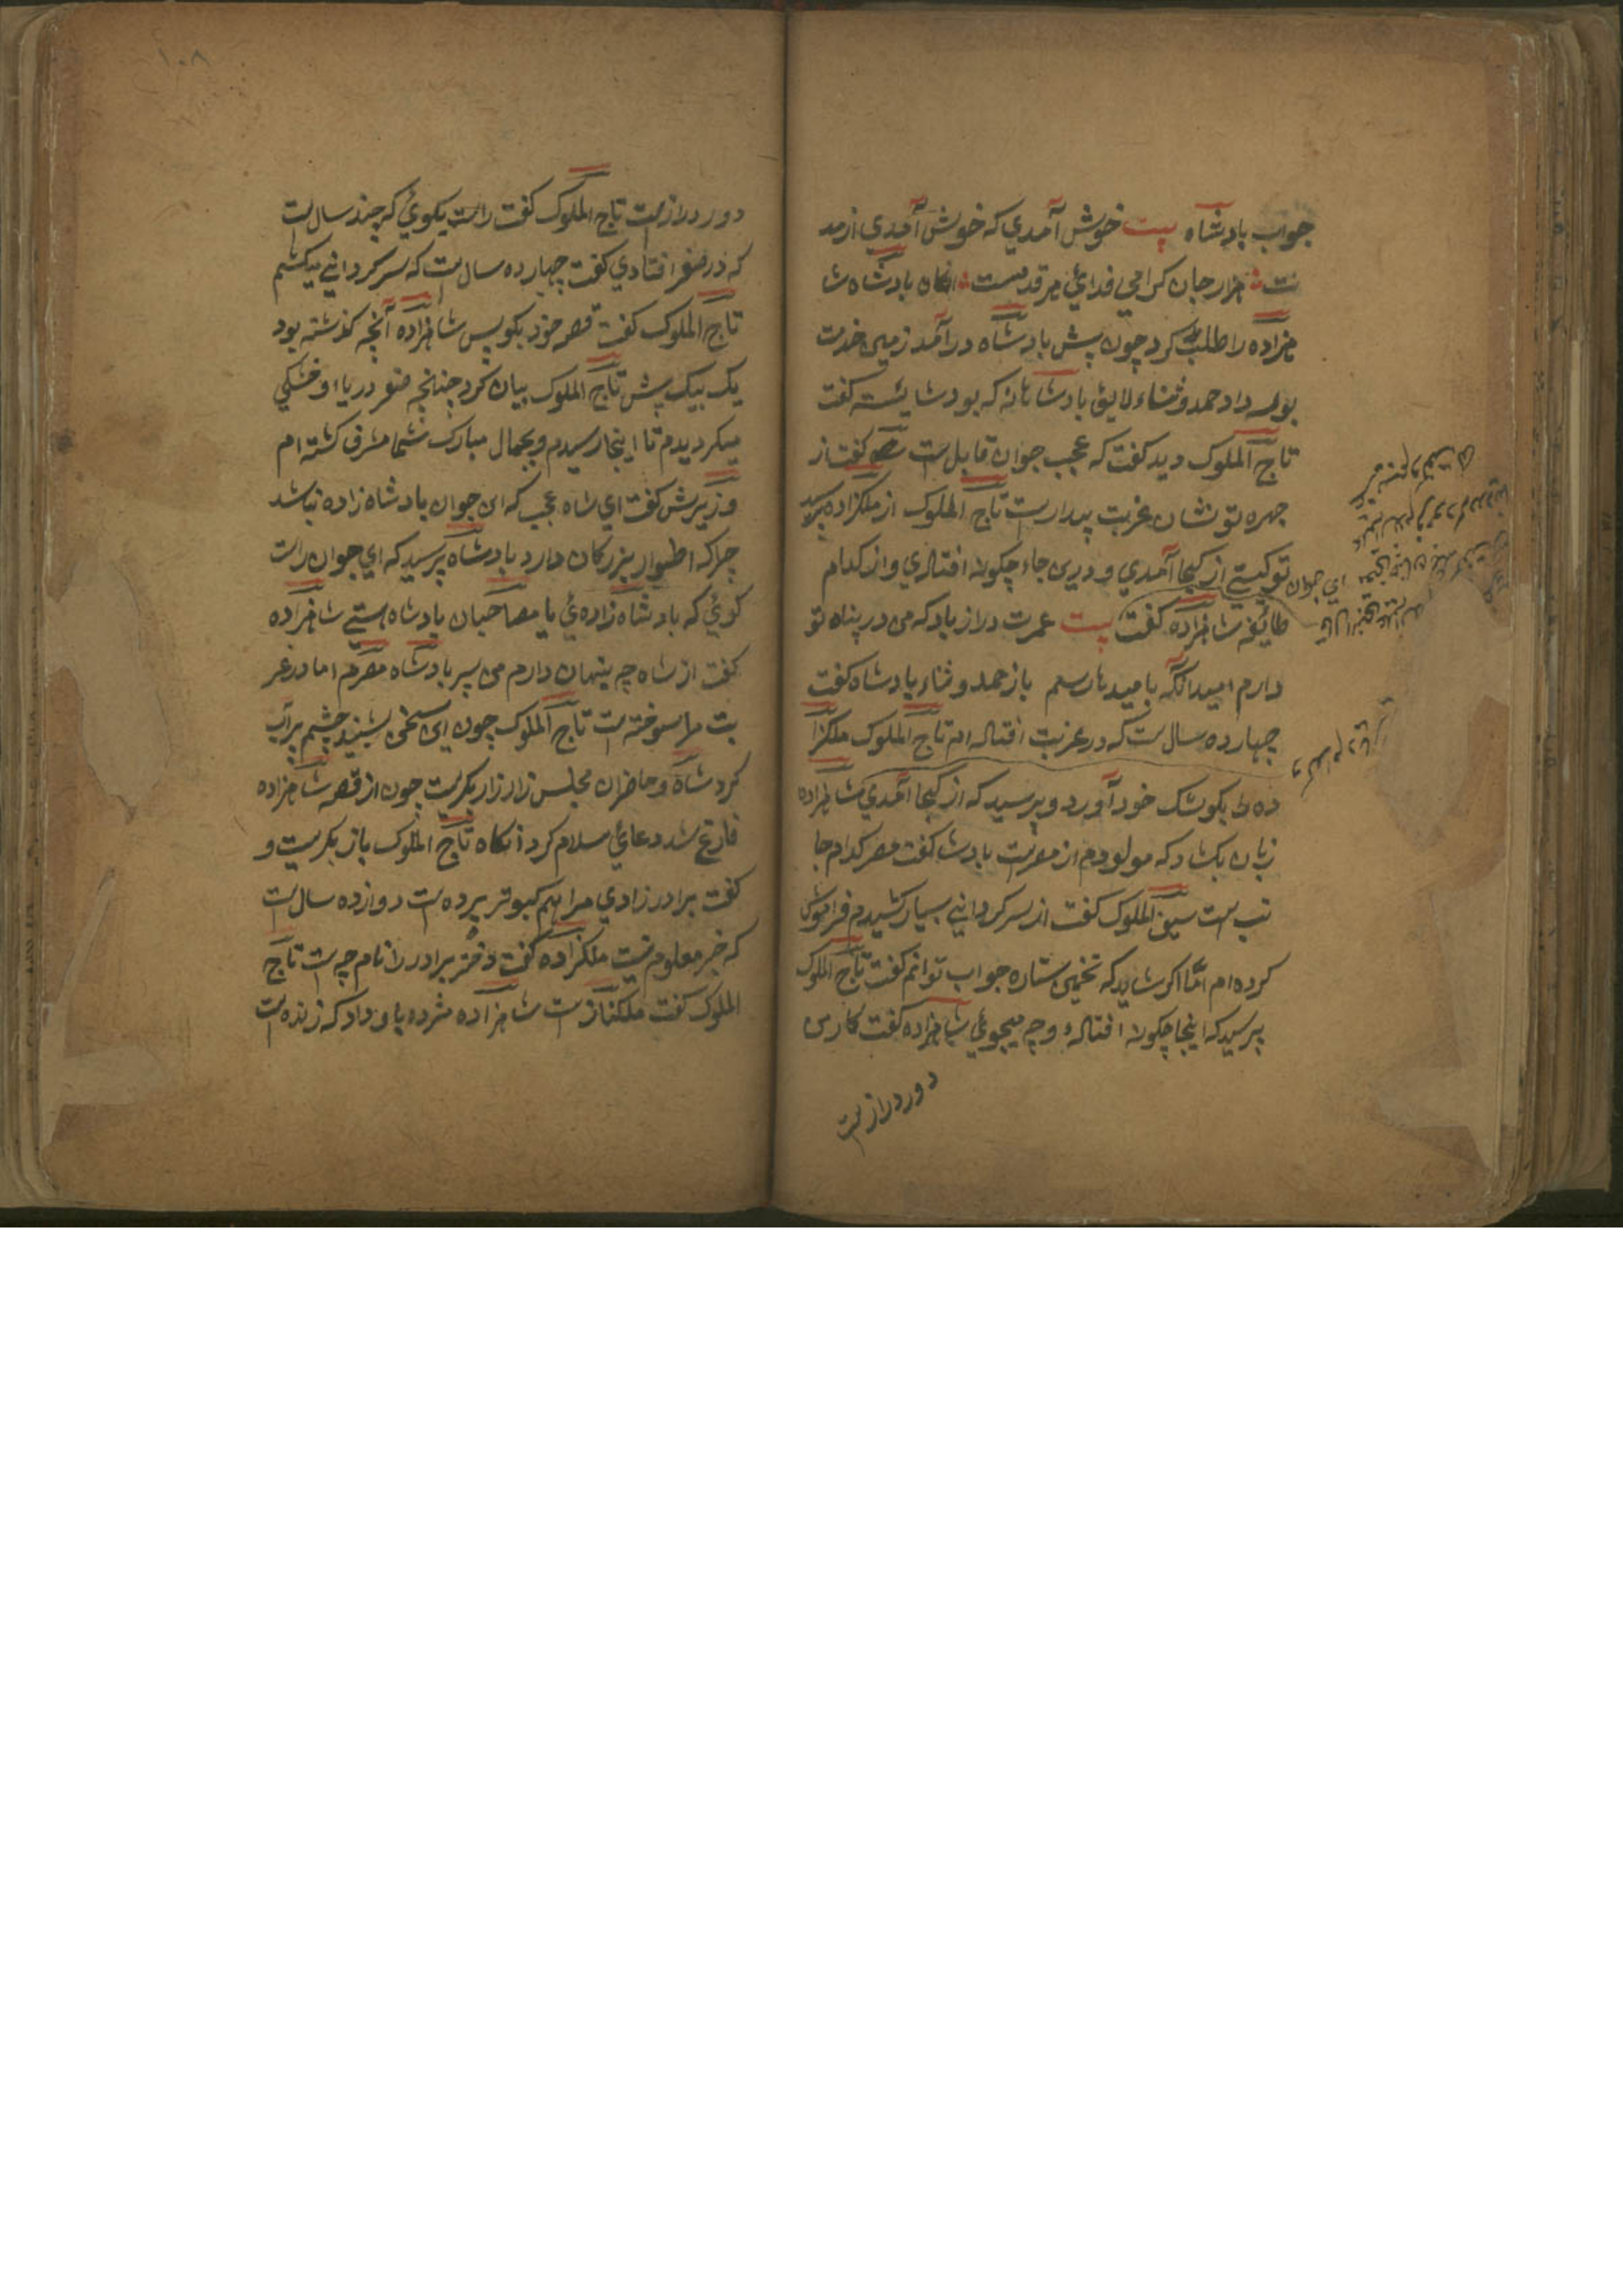 جواب پادشاه بیت خوش آمدي که خوش آمدي ازمد
ت هزار جان کرامي فدائي هر قدمست انکاه پادشاه شا
هزاده را طلب کرد چون پیش پادشاه درآمد زمین خدمت
بوسه داد حمد و ثناء لایق پادشاهانه که بود شایسته کفت
تاج الملوک دید کفت که عجب جوان قابل ست کفت از
چهره تو نشان غربت پیدا رست تاج الملوک از ملکزاده پرسید
تو کیستے از کجا آمدي و درین جاء چکونه افتادي و از کدام
طائفه شاهزاده کفت بیت عمرت دراز باد که من در پناه تو
دارم امید آنکه بامیدها رسم باز حمد و ثناء پادشاه کفت
چهارده سال ست که در غربت افتاده ام تاج الملوک ملکزا
ده را بکوشک خود آورد و پرسید که از کجا آمدي شاهزاده
زبان بکشاد که مولودم از مصرست پادشا کفت مصر کدام جا
نب ست سیف الملوک کفت از سرکردانے بسیار کشیدم فراموش
کرده ام امّا اکر شاید که تخمین ستاره جواب توانم کفت تاج الملوک
پرسید که اینجا چکونه افتادهٔ و چه میجوئي شاهزاده کفت کار من
دور دراز ست
۱۰۸
دور دراز ست تاج الملوک کفت راست بکوئي که چند سال ست
که در سفر افتادي کفت چهارده سال ست که سرکردانے میکشم
تاج الملوک کفت قصه خود بکو پس شاهزاده آنچه کذشته بود
یک بیک پیش تاج الملوک بیان کرد چنانچه سفر دریا و خشکي
میکردیدم تا اینجا رسیدم و بجمال مبارک شما مشرف کشته ام
وزیرش کفت اي شاه عجب که این جوان پادشاه زاده نباشد
چرا که اطوار بزرکان دارد پادشاه پرسید که اي جوان راست
کوئي که بادشاه زاده ئي یا مصاحبان پادشاه هستے شاهزاده
کفت از شاه چه پنهان دارم من پسر پادشاه مصرم اما در غر
بت مرا سوخته ست تاج الملوک چون این سخن بشنید چشم پر آب
کرد شاه و حاضران مجلس زار زار بکریست چون از قصه شاهزاده
فارغ شد دعائي سلام کرد انکاه تاج الملوک باز بکریست و
کفت برادر زادي مرا هم کبوتر برده ست دوازده سال ست
که خبر معلوم نیست ملکزاده کفت دختر برادر را نام چه ست تاج
الملوک کفت ملکناز ست شاهزاده مژده باو داد که زنده ست